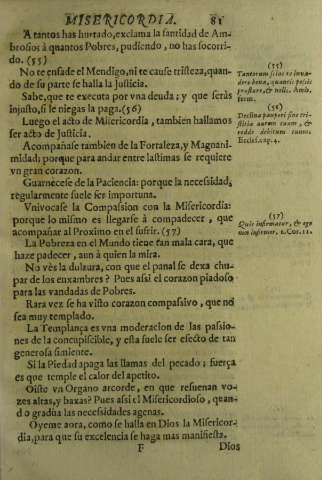 MISERICORDIA. 81
A tantos has hurtado, exclama la santidad de Am-
brosio: à quantos Pobres, pudiendo, no has socorri-
do. (55)
No te enfade el Mendigo, ni te cause tristeza, quan-
do de su parte se halla la Justicia.
Sabe, que te executa por vna deuda; y que seràs
injusto, si le niegas la paga. (56)
Luego el acto de Misericordia, tambien hallamos
ser acto de Justicia.
Acompañase tambien de la Fortaleza, y Magnani-
midad; porque para andar entre lastimas se requiere
vn gran corazon.
Guarnecese de la Paciencia: porque la necessidad,
regularmente suele ser importuna.
Vnivocase la Compassion con la Misericordia:
porque lo mismo es llegarse à compadecer, que
acompañar al Proximo en el sufrir. (57)
La Pobreza en el Mundo tiene tan mala cara, que
haze padecer, aun à quien la mira.
No vès la dulzura, con que el panal se dexa chu-
par de los enxambres? Pues assi el corazon piadoso
para las vandadas de Pobres.
Rara vez se ha visto corazon compasivo, que no
sea muy templado.
La Templança es vna moderacion de las passio-
nes de la concupiscible, y esta suele ser efecto de tan
generosa simiente.
Si la Piedad apaga las llamas del pecado; fuerça
es que temple el calor del apetito.
Oiste vn Organo acorde, en que resuenan vo-
zes altas, y baxas? Pues assi el Misericordioso, quan-
do gradùa las necessidades agenas.
Oyeme aora, como se halla en Dios la Misericor-
dia, para que su excelencia se haga mas manifiesta.
F Dios
(55)
Tantorum scias te inva-
dere bona, quantis possis
præstare, & nolis. Amb.
serm.
(56)
Declina pauperi sine tri-
stitia aurem tuam, &
redde debitum tuum.
Eccles. cap. 4.
(57)
Quis infirmatur, & ego
non infirmor. 2. Cor. 11.